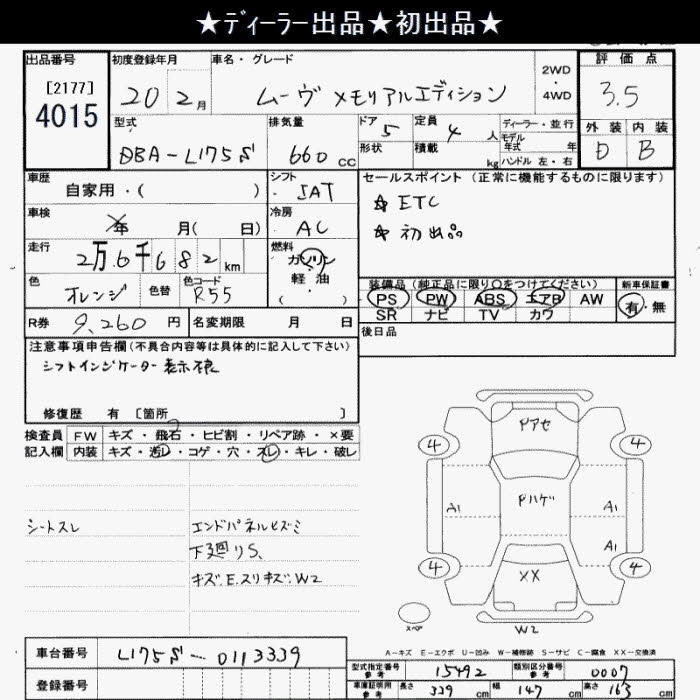 ★ディーラー出品★初出品★
出品番号
[2177]
4015
初度登録年月
20 2月
車名・グレード
ムーヴ メモリアルエディション
2WD
・
4WD
評価点
3.5
外装 内装
D B
型式
DBA-L175S
排気量
660 cc
ドア
5
定員
4 人
ディーラー・並行
モデル
年式 年
形状
積載
kg
ハンドル 左・右
車歴
自家用・( )
シフト
5AT
セールスポイント (正常に機能するものに限ります)
☆ ETC
☆ 初出品
車検
年 月( 日)
冷房
AC
走行
2万6千682km
燃料
ガソリン
軽油
( ・ )
色
オレンジ
色替
色コード
R55
装備品 (純正品に限り○をつけてください)
PS PW ABS エアB AW
SR ナビ TV カワ
新車保証書
有・無
R券 9,260 円
名変期限 月 日
後日品
注意事項申告欄 (不具合内容等は具体的に記入して下さい)
シフトインジケーター表示不良
修復歴 有 〔箇所 〕
検査員
記入欄
FW キズ・飛石・ヒビ割・リペア跡・×要
内装 キズ・汚レ・コゲ・穴・スレ・キレ・破レ
シートスレ
エンドパネルヒズミ
下廻りS、
キズ.E.スリキズ.W2
Pアセ
4 4
Pハゲ
A1 A1
A1
4 4
XX
スペア
W2
A-キズ E-エクボ U-凹み W-補修跡 S-サビ C-腐食 XX-交換済
車台番号
L175S-0113339
登録番号
型式指定番号
参考
15492
類別区分番号
参考
0007
車庫証明用
参考
長さ 339 cm
幅 147 cm
高さ 163 cm